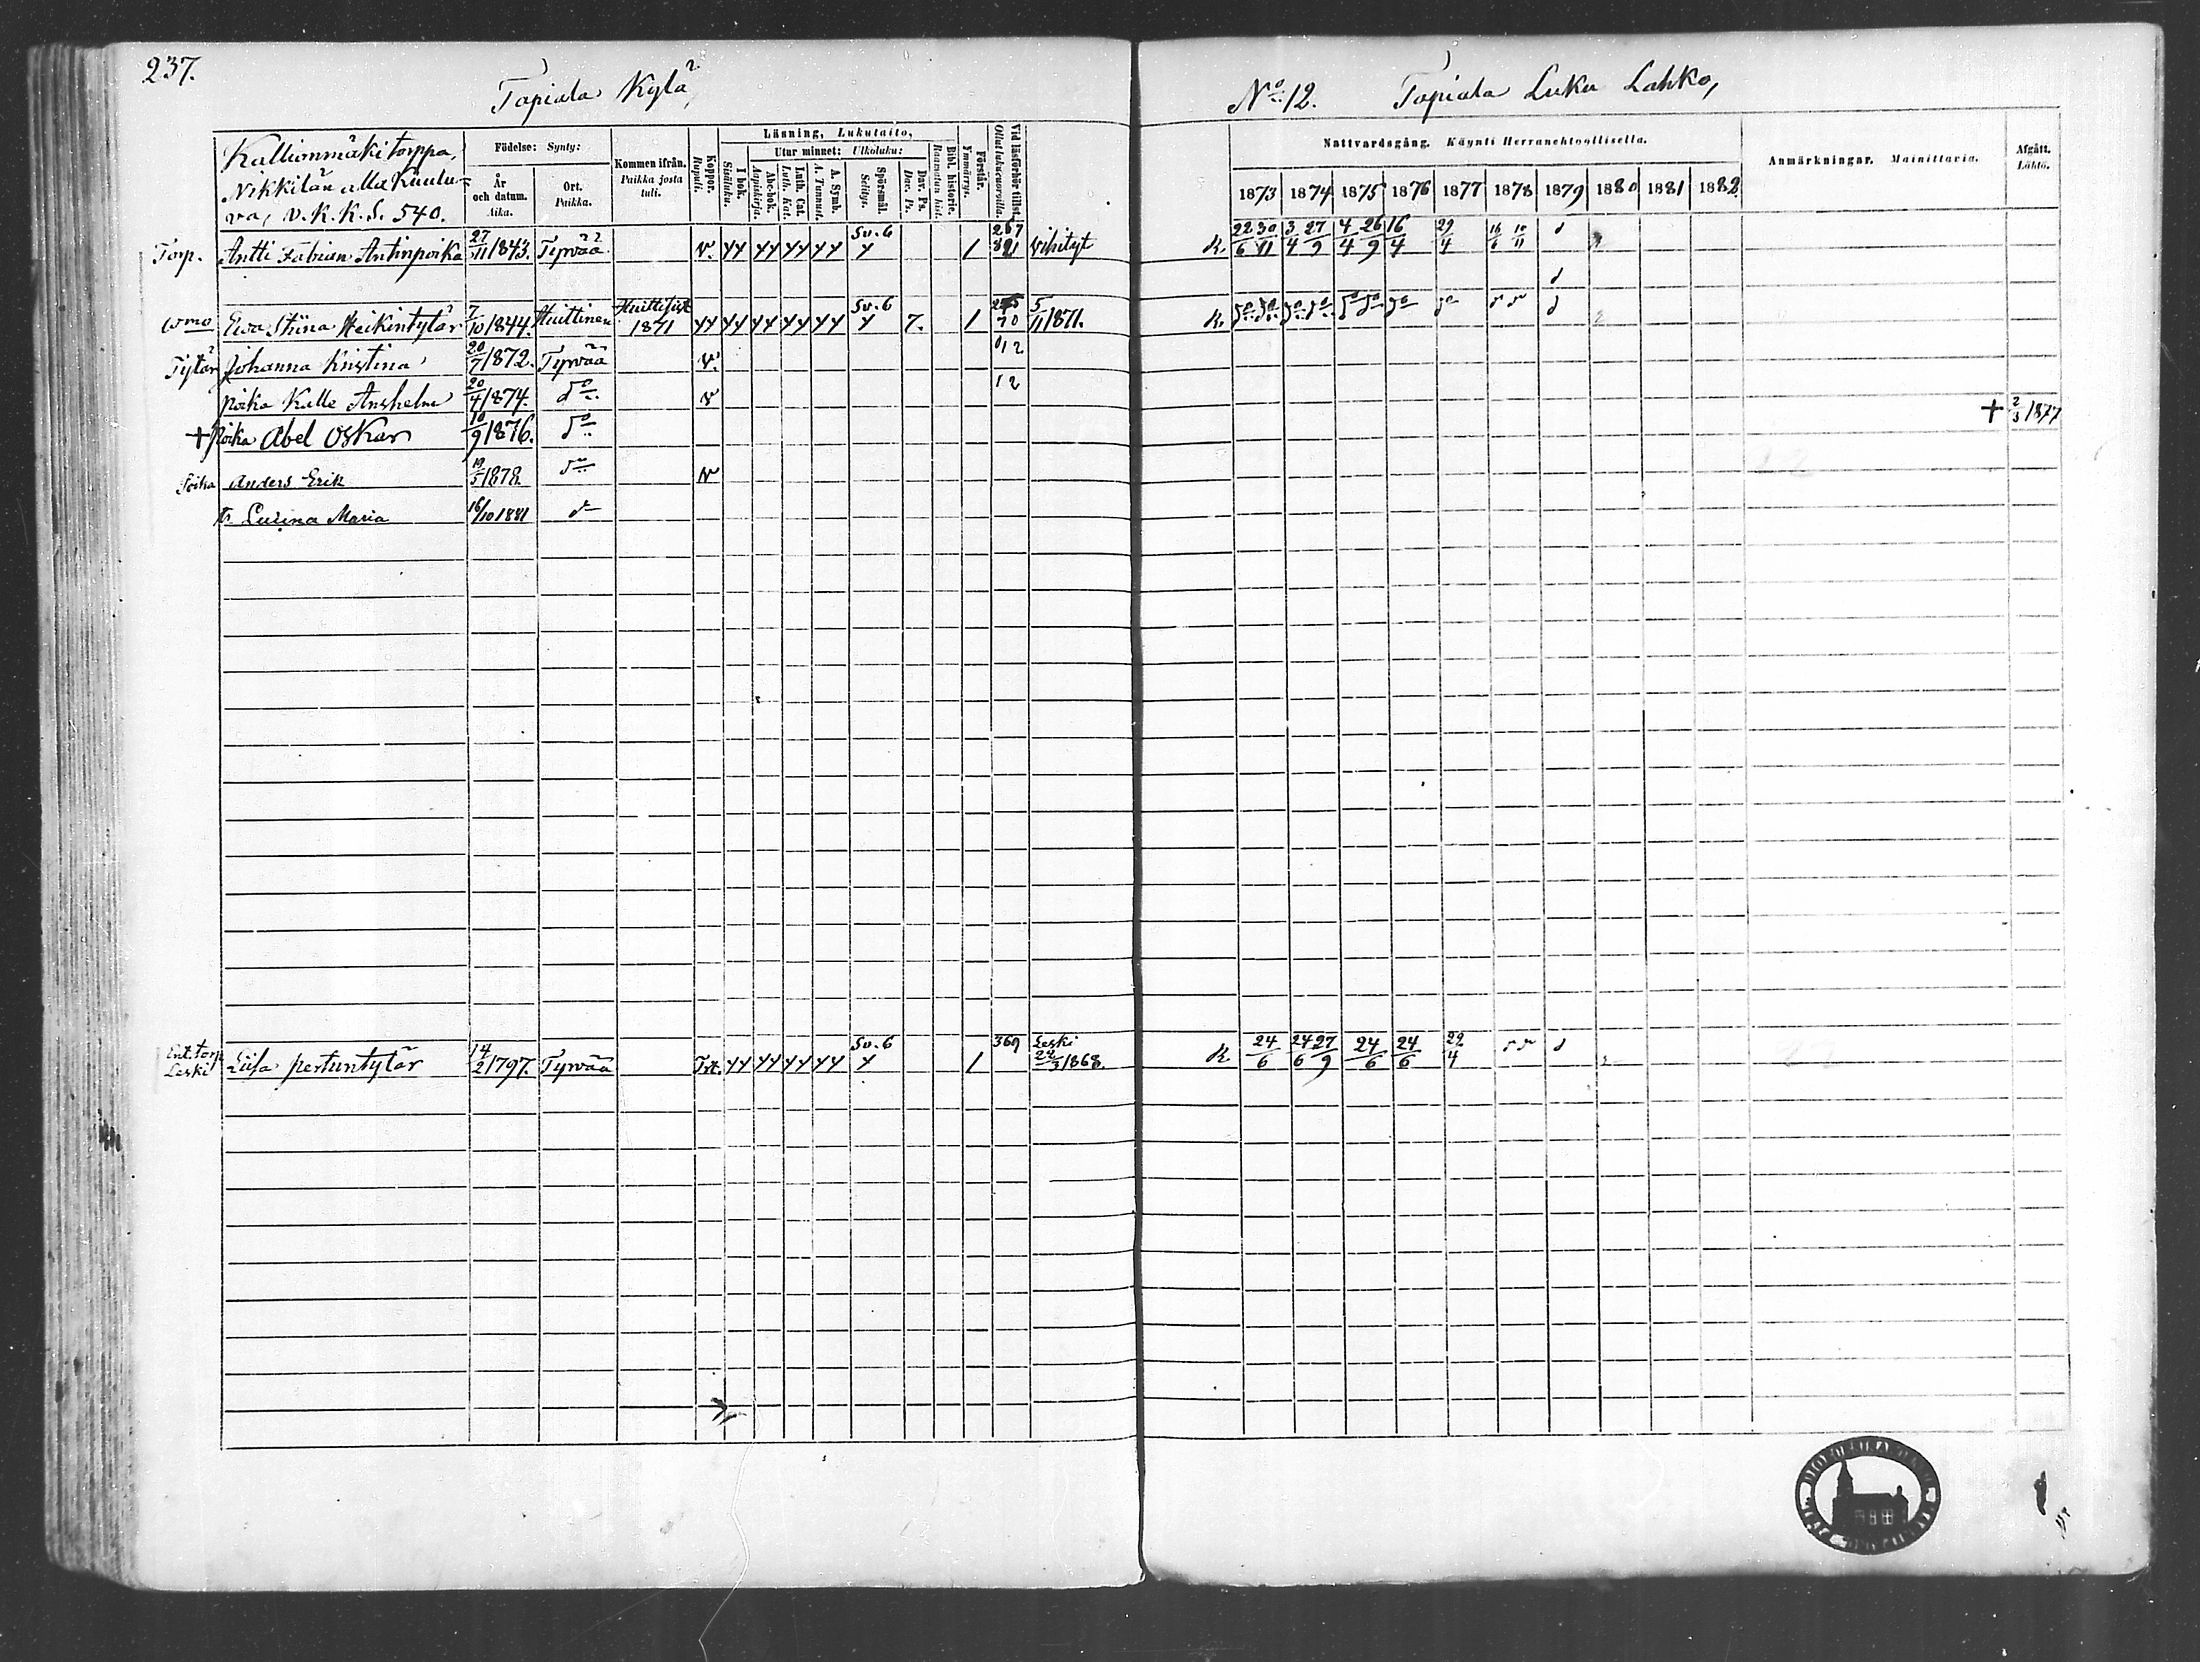 237.
Tapiala Kylä,
No 12. Tapiala Luku Lahko,
Kallionmäki torppa,
Nikkilän alla kuulu-
va, v. K. K. S. 540.
Födelse: Synty:
År och datum. Aika.
Ort. Paikka.
Kommen ifrån. Paikka josta tuli.
Koppor. Rupuli.
Läsning, Lukutaito,
I bok. Sisäluku.
Utur minnet: Ulkoluku:
Abc-bok. Aapiskirja.
Luth. Cat. Luth. Kat.
A. Symb. A. Tunnust.
Spörsmål. Selitys.
Dav. Ps. Dav. Ps.
Bibl. historie. Raamatun hist.
Förstår. Ymmärrys.
Vid läsförhör tillst. Ollut lukuvuorolla.
Nattvardsgång. Käynti Herranehtoollisella.
1873 1874 1875 1876 1877 1878 1879 1880 1881 1882
Anmärkningar. Mainittavia.
Afgått. Lähtö.
Torp. Antti Fabrian Antinpoika 27/11 1843. Tyrvää v. Sv. 6 1 Vihityt R. 22/6 30/11 3/4 27/9 4/4 26/9 16/4 29/4 16/6 10/11 d
d
Ewa Stiina Heikintytär 7/10 1844. Huittinen 1871 Sv. 6 7. 1 5/11 1871. R.
Tytär Johanna Kristina 20/7 1872. Tyrvää v. 12
poika Kalle Anshelm 20/4 1874. do v 12
+ poika Abel Oskar 10/9 1876. do + 2/3 1877
Poika Anders Erik 19/5 1878 do v
tr. Lusina Maria 16/10 1881 d
Ent. torp. Leski Liisa Pertuntytär 14/2 1797. Tyrvää Sv. 6 1 369 Leski 22/3 1868. R 24/6 24/6 27/9 24/6 24/6 22/4 d